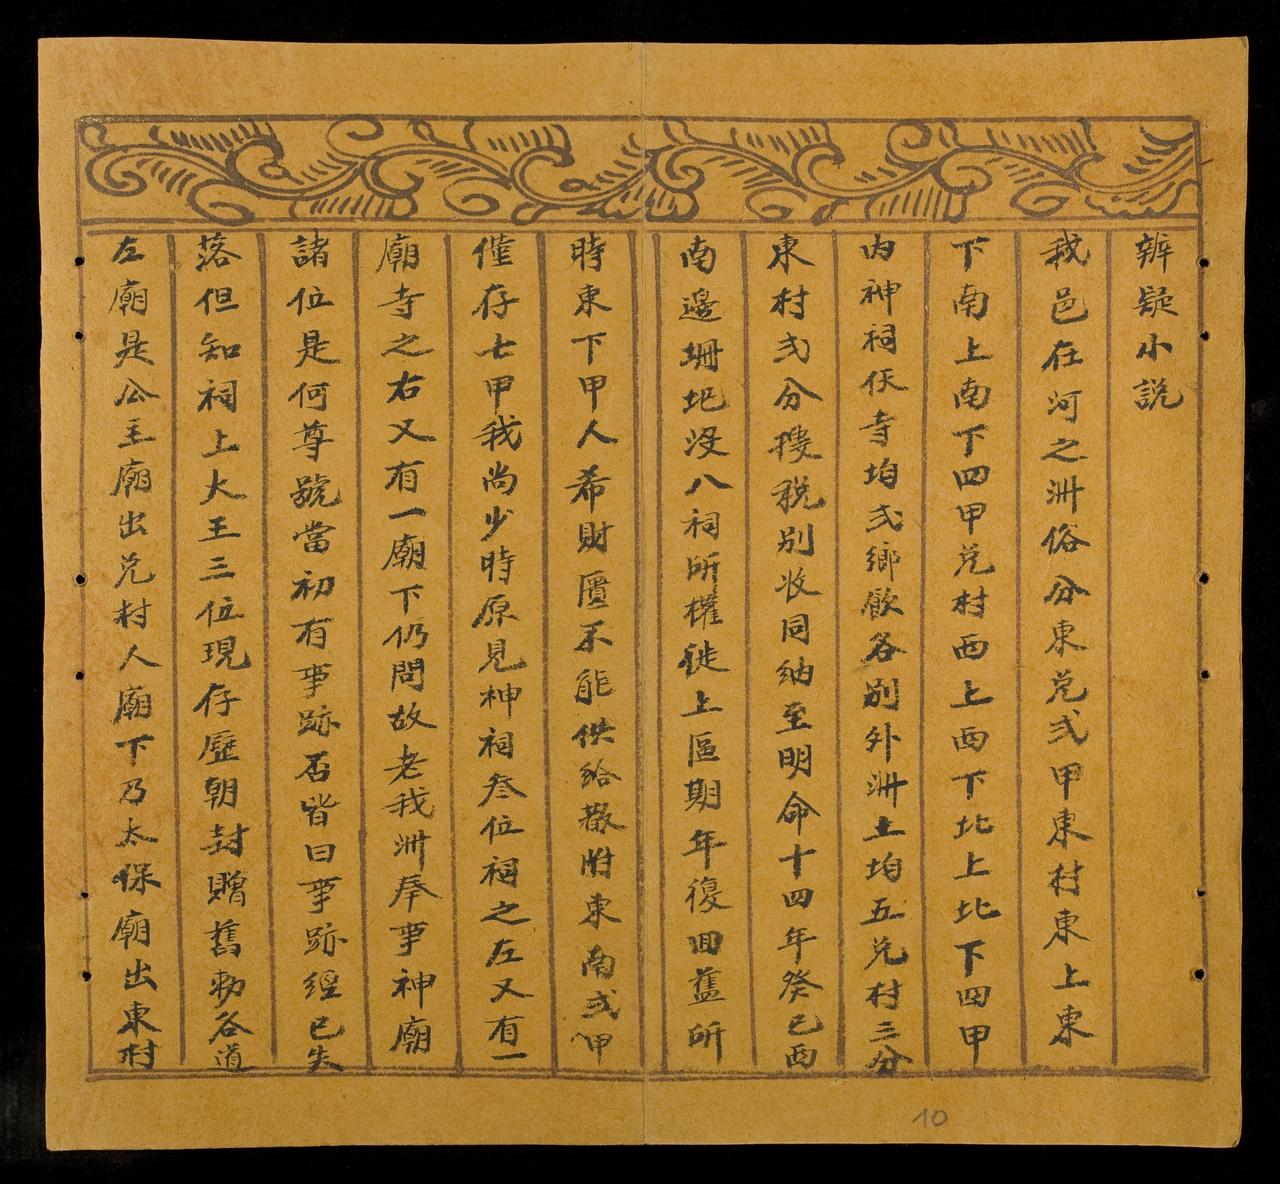 辨疑小説
我邑在河之洲俗分東兌弍甲東村東上東
下南上南下四甲兌村西上西下北上北下四甲
内神祠仸寺均弍鄉飲各別外洲土均五兌村三分
東村弍分搜税別收同納至明命十四年癸巳西
南邊坍圯沒八祠所權徙上區期年復回舊所
時東下甲人希財匱不能供給散附東南弍甲
僅存七甲我尚少時原見神祠叁位祠之左又有一
廟寺之右又有一廟下仍問故老我洲奉事神廟
諸位是何尊號當初有事跡否皆曰事跡經已失
落但知祠上大王三位現存歷朝封贈舊勅各道
左廟是公主廟出兌村人廟下乃太保廟出東村
10